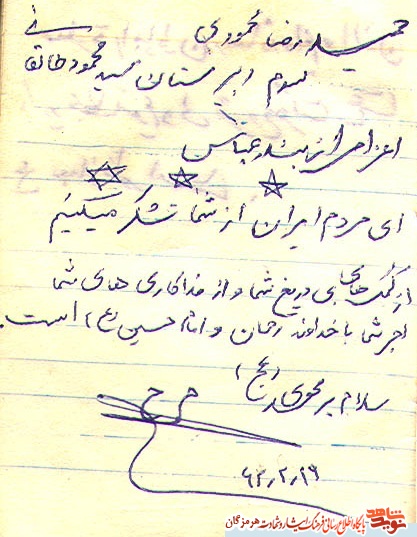 حمید رضا محمودی
سوم دبیرستان سید محمود طالقانی
اعزام از بندرعباس
ای مردم ایران از شما تشکر میکنیم
از کمک های بی دریغ شما و از فداکاری های شما
اجر شما با خداوند رحمان و امام حسین (ع) است.
سلام بر مهدی (عج)
۶۲٫۲٫۱۹
شاهد نوید
پایگاه اطلاع رسانی فرهنگ ایثار و شهادت هرمزگان